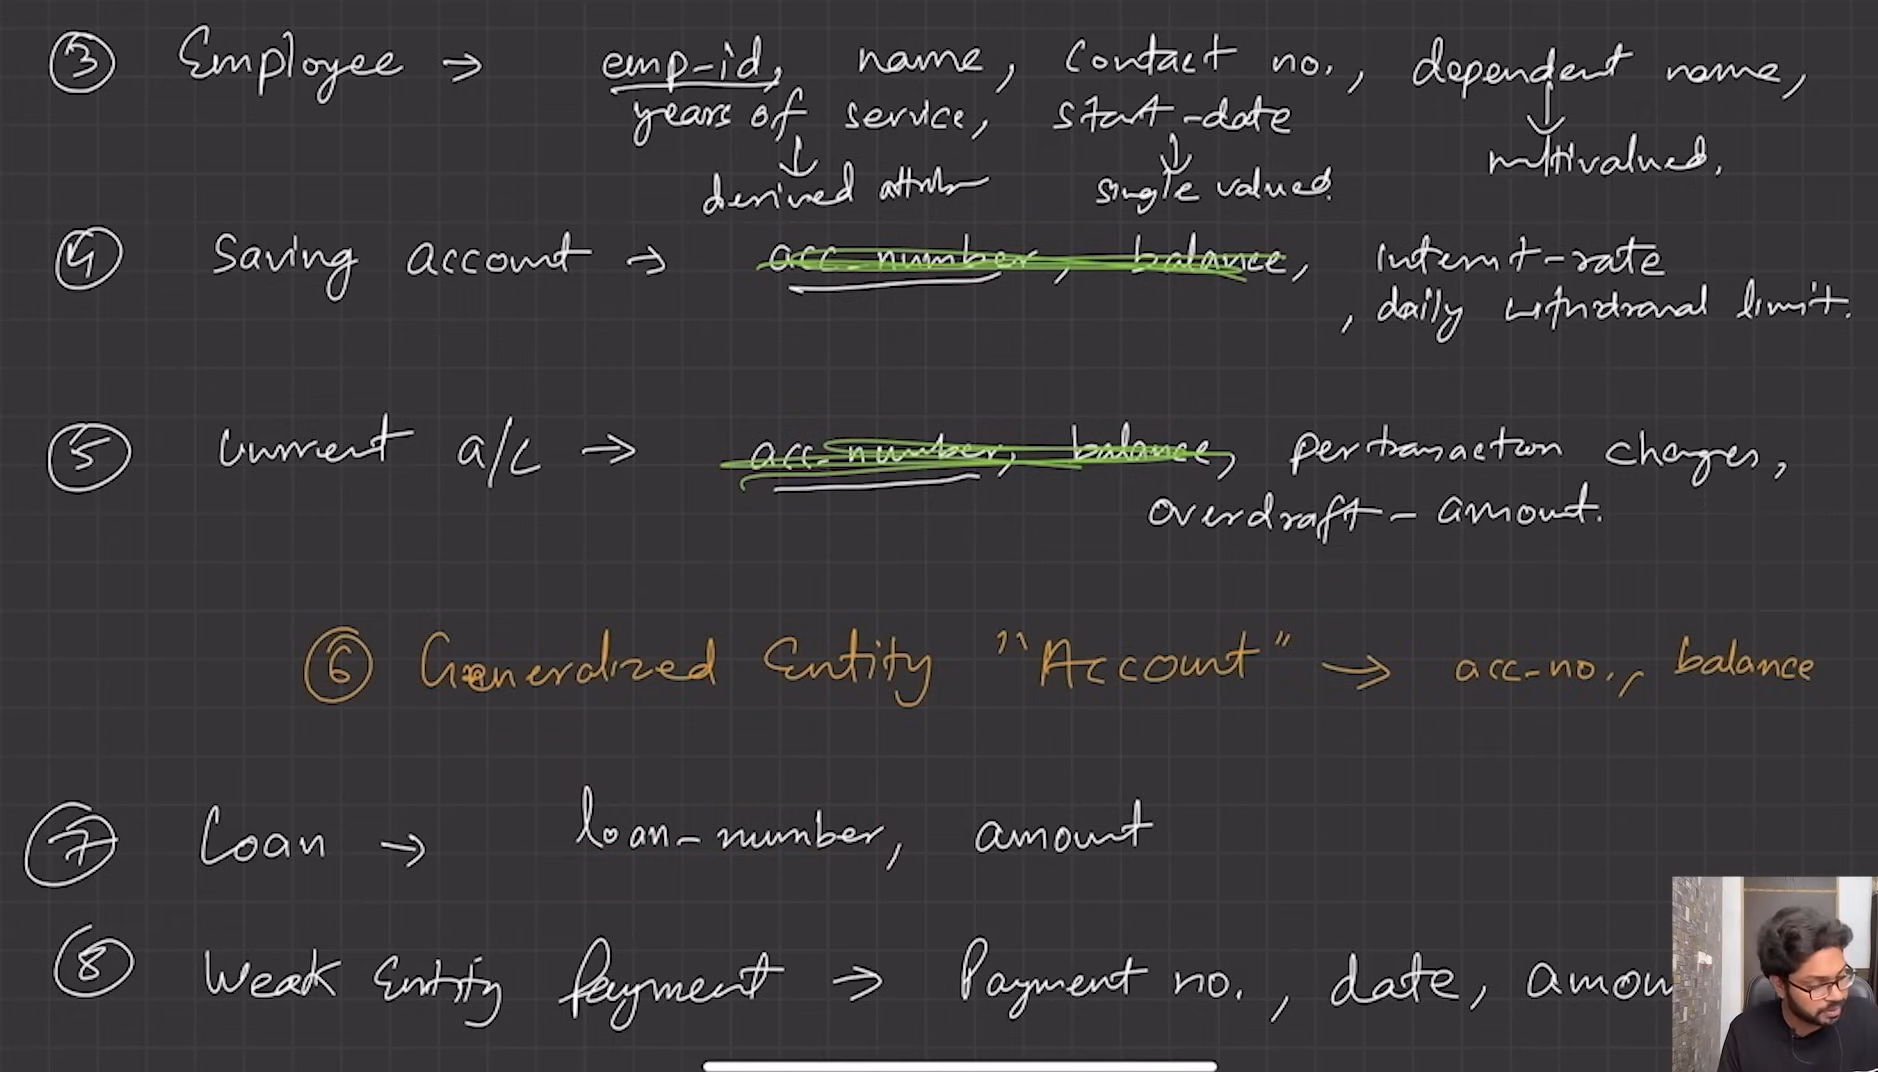 ③ Employee → emp-id, name, contact no., dependent name,
years of service, start-date
↓ ↓ ↓
derived attrib single valued. multivalued.
④ Saving account → acc-number, balance, interest-rate
, daily withdrawal limit.
⑤ Current a/c → acc-number, balance, per transaction charges,
overdraft-amount.
⑥ Generalized Entity "Account" → acc-no., balance
⑦ Loan → loan-number, amount
⑧ Weak Entity Payment → Payment no., date, amoun